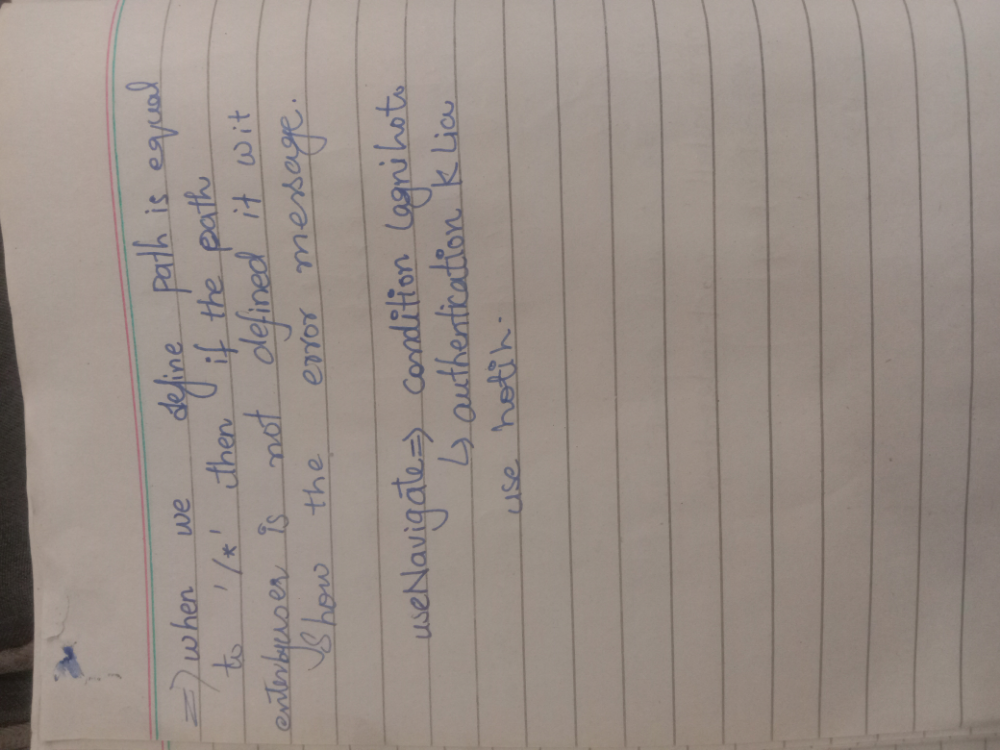 => when we define path is equal
to '/*' then if the path
enterbyuser is not defined it wit
show the error message.
useNavigate => condition lagni hoto
↳ authentication k lia
use hoti h.